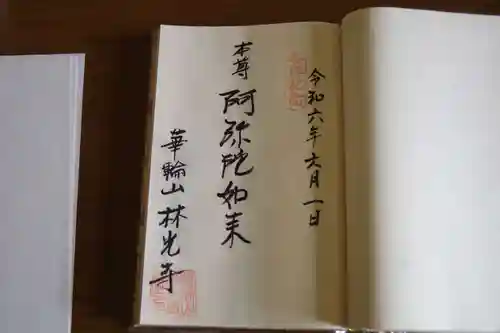 令和六年六月一日
本尊
阿弥陀如来
華輪山 林光寺